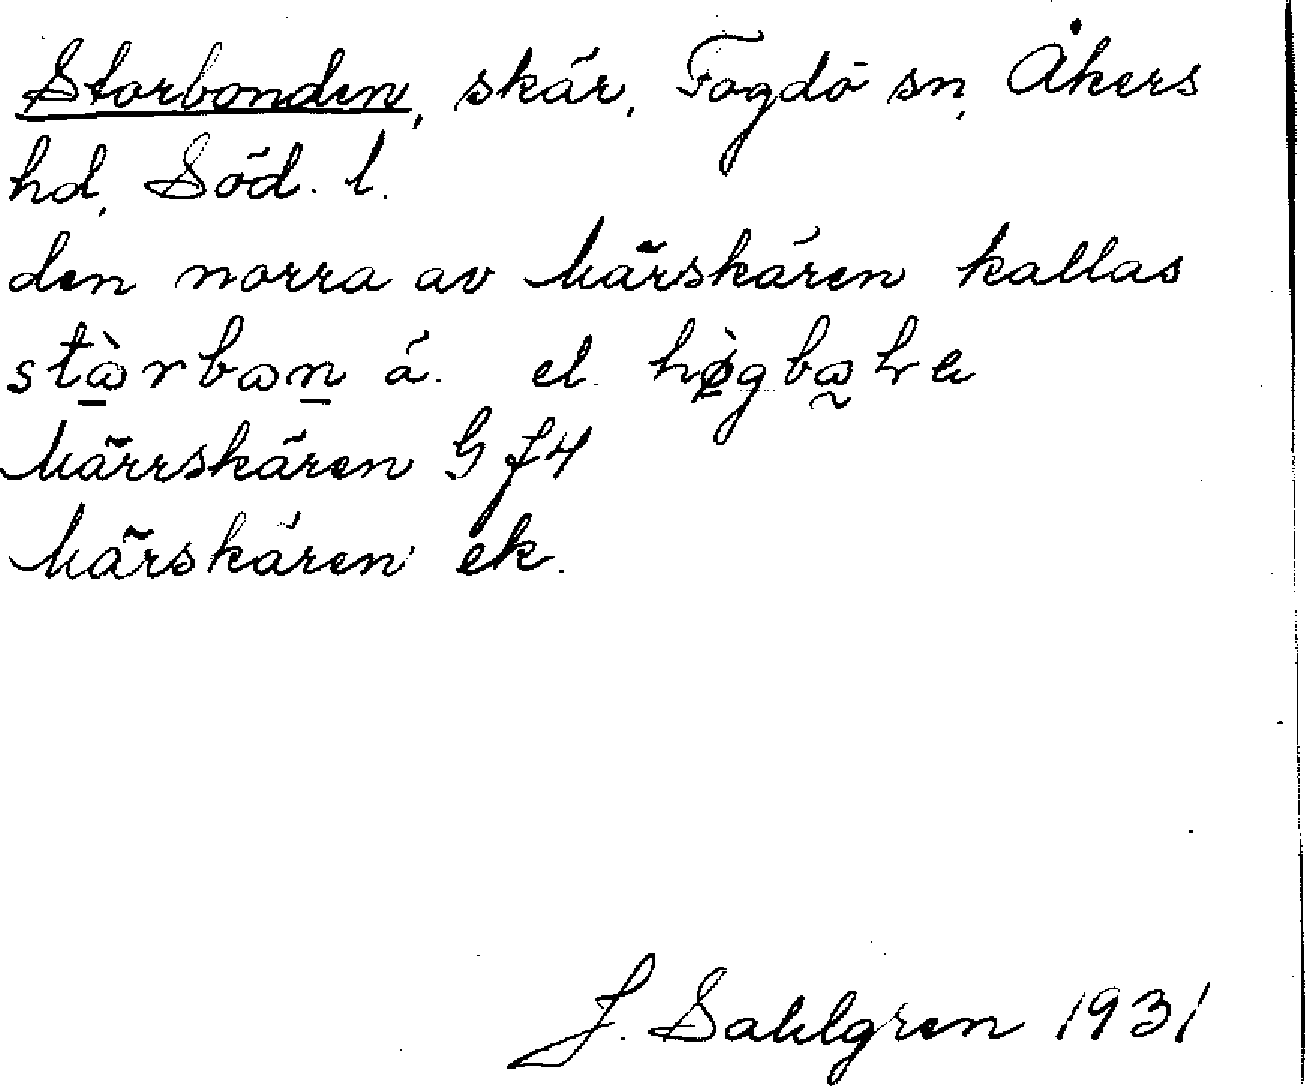 Storbonden, skär, Fogdö sn, Åkers
hd, Söd. l.
den norra av Märskären kallas
stɷ̀rbɷn á. el. hø̀gba̰ka
Märrskären G f 4
Märskären ek.
J. Sahlgren 1931